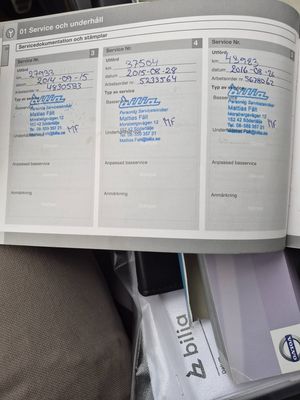 01 Service och underhåll
Servicedokumentation och stämplar
Service Nr. 3
Utförd
km 27933
datum 2014-09-15
Arbetsorder nr 4830583
Typ av service
Basservice
bilia
Personlig Servicetekniker
Mattias Fält
Morabergsvägen 12
152 42 Södertälje
Tel. 08-555 357 21
Mattias.Falt@bilia.se
MF
Anpassad basservice
Anmärkning
Service Nr. 4
Utförd
km 37504
datum 2015-08-28
Arbetsorder nr 5233564
Typ av service
bilia
Personlig Servicetekniker
Mattias Fält
Morabergsvägen 12
152 42 Södertälje
MF
Anpassad basservice
Anmärkning
Service Nr.
Utförd
km 48983
datum 2016-08-26
Arbetsorder nr 5678062
Typ av service
bilia
Personlig Servicetekniker
Mattias Fält
Morabergsvägen 12
152 42 Södertälje
MF
Anpassad basservice
Anmärkning
bilia
VOLVO